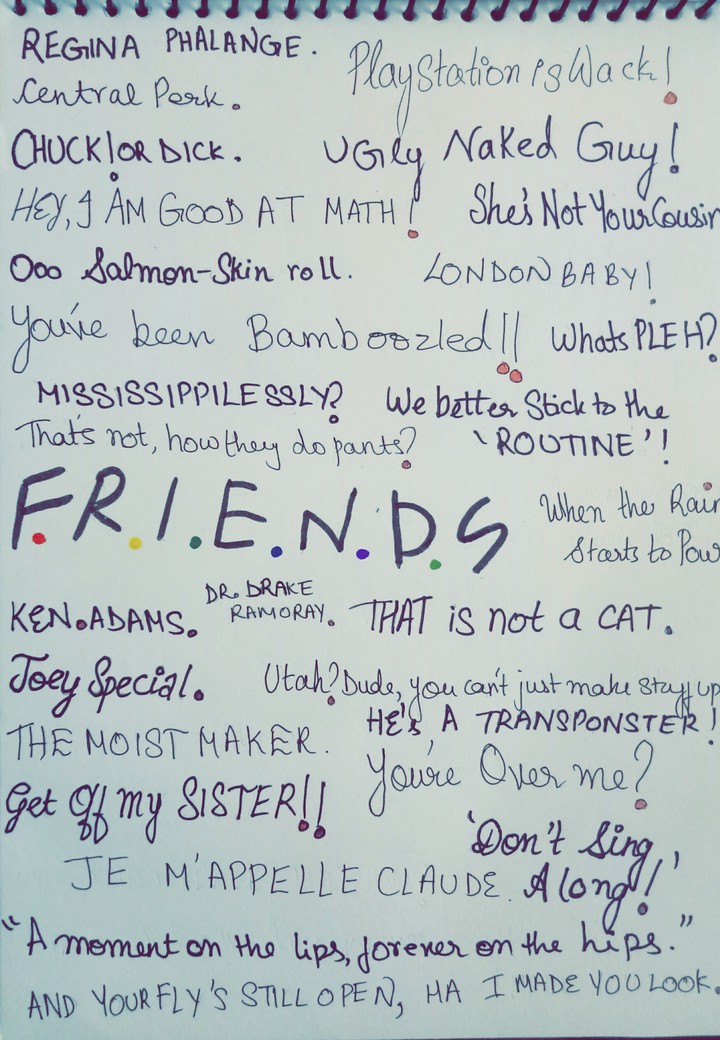 REGINA PHALANGE.
PlayStation is Wack!
Central Perk.
CHUCK! OR DICK.
UGly Naked Guy!
HEY, I AM GOOD AT MATH!
She's Not Your Cousin
Ooo Salmon-Skin roll.
LONDON BABY!
You've been Bamboozled!!
Whats PLEH?
MISSISSIPPILESSLY?
We better Stick to the
'ROUTINE'!
That's not, how they do pants?
F.R.I.E.N.D.S
When the Rain
Starts to Pour
KEN.ADAMS.
DR. DRAKE
RAMORAY.
THAT is not a CAT.
Joey Special.
Utah? Dude, you can't just make stuff up
THE MOIST MAKER.
HE's A TRANSPONSTER!
You're Over me?
Get Off my SISTER!!
'Don't Sing
Along!'
JE M'APPELLE CLAUDE.
"A moment on the lips, forever on the hips."
AND YOUR FLY'S STILL OPEN, HA I MADE YOU LOOK.